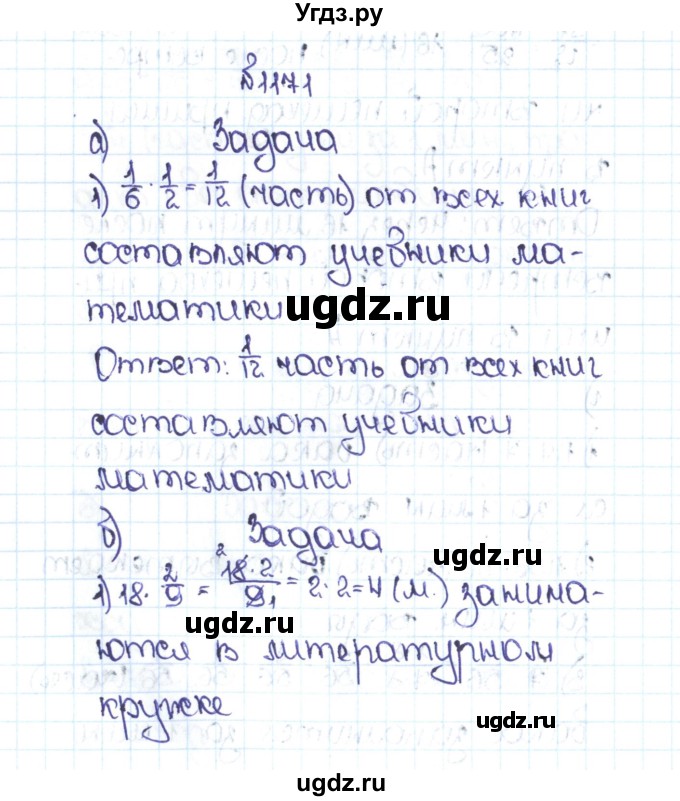 Угдз.ру
№1171
а) Задача
1) 1/6 · 1/2 = 1/12 (часть) от всех книг
составляют учебники ма-
тематики
ugdz.ru
Ответ: 1/12 часть от всех книг
составляют учебники
математики
б) Задача
ugdz.ru
1) 18 · 2/9 = 18·2/9 = 2·2=4 (м.) занима-
ugdz.ru
ются в литературном
кружке
ugdz.ru
ugdz.ru